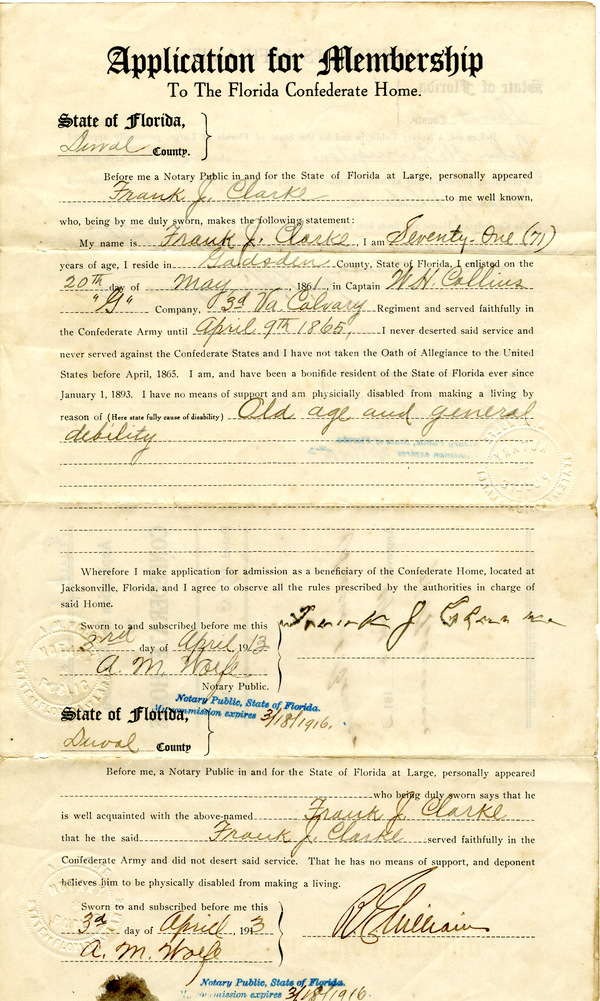 Application for Membership
To The Florida Confederate Home.
State of Florida,
Duval County.
Before me a Notary Public in and for the State of Florida at Large, personally appeared
Frank J. Clarke to me well known,
who, being by me duly sworn, makes the following statement:
My name is Frank J. Clarke, I am Seventy-One (71)
years of age, I reside in Gadsden County, State of Florida, I enlisted on the
20th day of May, 1861, in Captain W.H. Collins
"G" Company, 3d Va. Calvary Regiment and served faithfully in
the Confederate Army until April 9th 1865, I never deserted said service and
never served against the Confederate States and I have not taken the Oath of Allegiance to the United
States before April, 1865. I am, and have been a bonifide resident of the State of Florida ever since
January 1, 1893. I have no means of support and am physicially disabled from making a living by
reason of (Here state fully cause of disability) Old age and general
debility
Wherefore I make application for admission as a beneficiary of the Confederate Home, located at
Jacksonville, Florida, and I agree to observe all the rules prescribed by the authorities in charge of
said Home.
Sworn to and subscribed before me this
3rd day of April, 1913
Frank J. Clarke
A. M. Wolfe
Notary Public.
Notary Public, State of Florida.
My commission expires 3/18/1916.
State of Florida,
Duval County
Before me, a Notary Public in and for the State of Florida at Large, personally appeared
who being duly sworn says that he
is well acquainted with the above-named Frank J. Clarke
that he the said Frank J. Clarke served faithfully in the
Confederate Army and did not desert said service. That he has no means of support, and deponent
believes him to be physically disabled from making a living.
Sworn to and subscribed before me this
3d day of April, 1913
A. M. Wolfe
Notary Public, State of Florida.
My commission expires 3/18/1916.